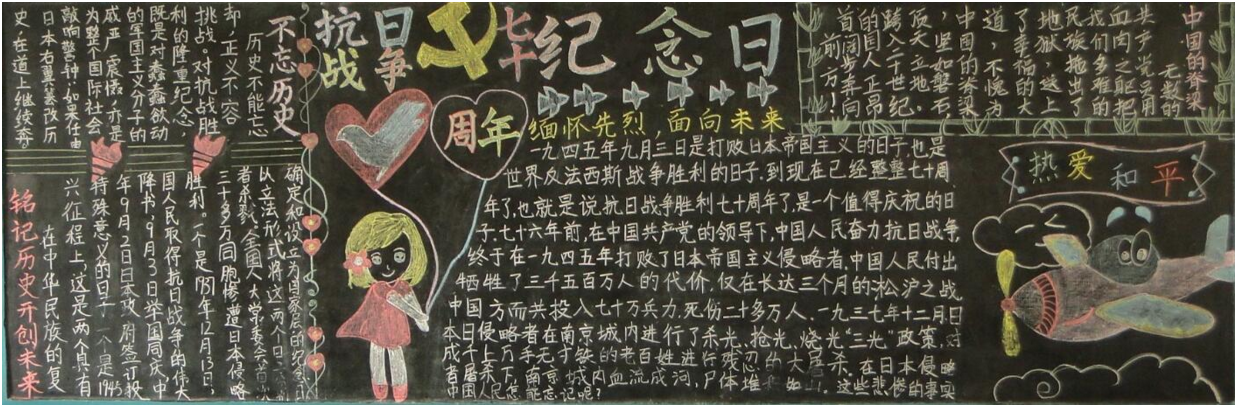 抗日战争
七十
周年
纪念日
缅怀先烈,面向未来
一九四五年九月三日是打败日本帝国主义的日子,也是
世界反法西斯战争胜利的日子.到现在已经整整七十周
年了,也就是说抗日战争胜利七十周年了,是一个值得庆祝的日
子.七十六年前,在中国共产党的领导下,中国人民奋力抗日战争,
终于在一九四五年打败了日本帝国主义侵略者,中国人民付出
牺牲了三千五百万人的代价,仅在长达三个月的淞沪之战
中国方面共投入七十万兵力,死伤二十多万人.一九三七年十二月日
本侵略者在南京城内进行了杀光、抢光、烧光"三光"政策,对
成千上万手无寸铁的老百姓进行残忍的大屠杀.在日本侵略
者屠杀下,南京城内血流成河,尸体堆如山.这些悲惨的事实
中国人民怎能忘记呢?
不忘历史
历史不能忘
却,正义不容
挑战。对抗战胜
利的隆重纪念,
既是对蠢蠢欲动
的军国主义分子的
威严震慑,亦是
为整个国际社会
敲响警钟,如果任由
日本右翼篡改历
史,在道上继续
确定和设立为国家层
以立法形式将这两个日
者杀戮,全国人大常委会
三十多万同胞惨遭日本侵略
胜利。一个是1937年12月13日,
国人民取得抗日战争的伟大
降书,9月3日举国同庆中
年9月2日日本政府签订投
特殊意义的日子一个是1945
兴征程上,这是两个具有
在中华民族的复
铭记历史开创未来
中国的脊梁
无数的
共产党员用
血肉之躯把
我们多难的
民族拖出了
地狱,送上
了幸福的大
道,不愧为
中国的脊梁
,坚如磐石,
顶天立地。
跨入二十世纪
的国人正昂
首阔步奔向
前方!
热爱和平